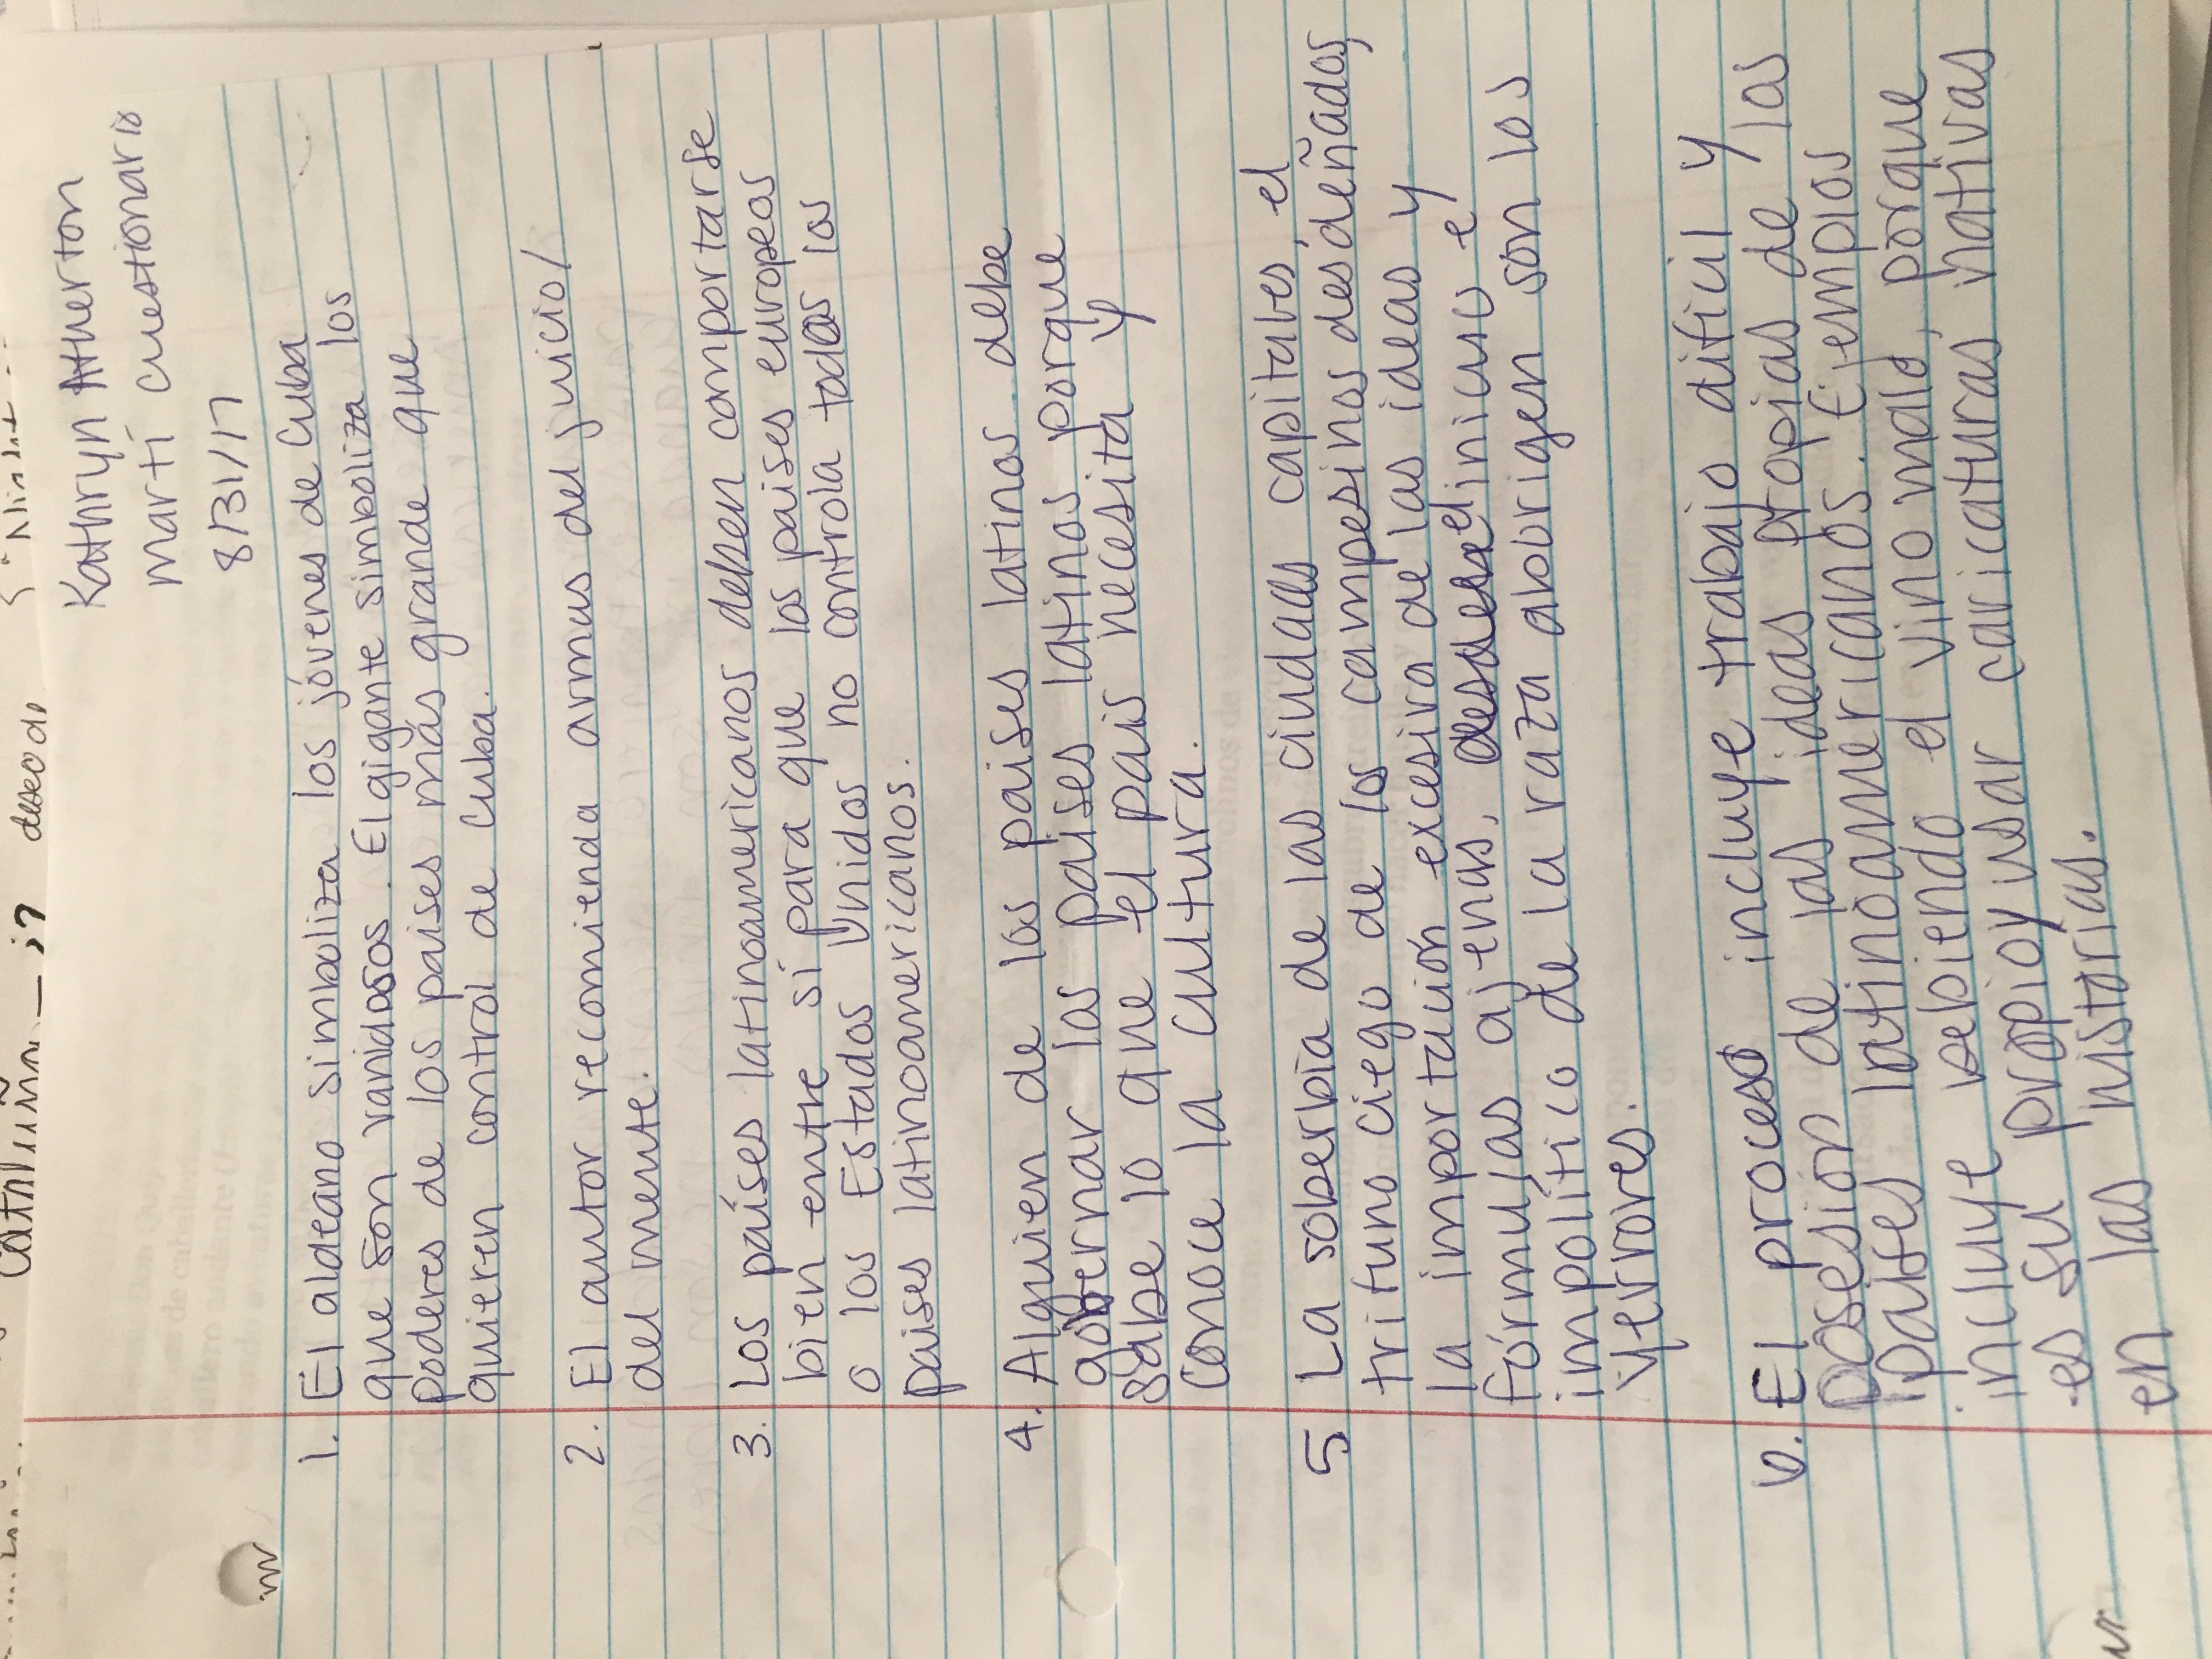 Cataluña — deseo de
Kathryn Atherton
Martí Cuestionario
8/31/17
1. El aldeano simboliza los jóvenes de Cuba
que son vanidosos. El gigante simboliza los
poderes de los paises más grande que
quieren control de Cuba.
2. El autor recomienda armas del juicio/
del mente.
3. Los países latinoamericanos deben comportarse
bien entre sí para que los paises europeos
o los Estados Unidos no controla todos los
paises latinoamericanos.
4. Alguien de los paises latinos debe
gobernar los paises latinos porque
sabe lo que el pais necesita y
conoce la cultura.
5 La soberbia de las ciudades capitales, el
trifuno ciego de los campesinos desdeñados,
la importación excesiva de las ideas y
fórmulas ajenas, el inicuso e
impolítico de la raza aborigen son los
yerrores.
6. El proceso incluye trabajo dificil y
posesión de las ideas propias de los
paises latinoamericanos. Ejemplos
incluye bebiendo el vino malo, porque
es su propio y usar caricaturas nativas
en las historias.